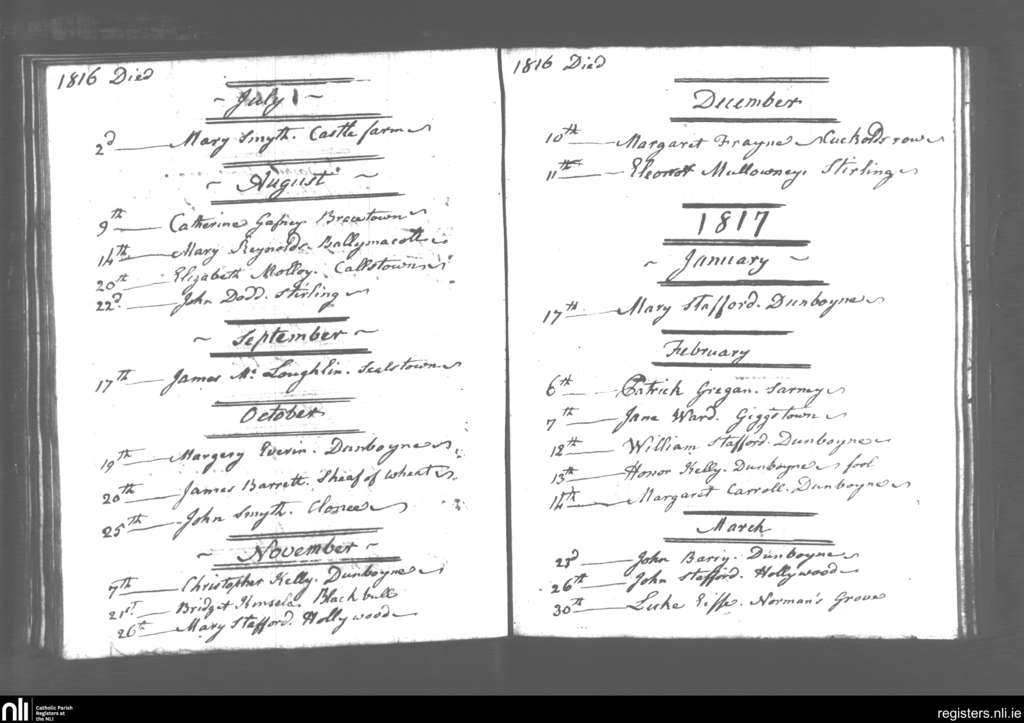 1816 Died
~ July ~
2d Mary Smyth. Castle farm
~ August ~
9th Catherine Gafney. Bracetown
14th Mary Reynolds. Ballymacoll
20th Elizabeth Molloy. Callstown
22d John Dodd. Stirling
~ September ~
17th James Mc Loughlin. Sealstown
October
19th Margery Everin. Dunboyne
20th James Barrett. Sheaf of wheat
25th John Smyth. Clonee
~ November ~
7th Christopher Kelly. Dunboyne
21st Bridget Kinsela. Blackbull
26th Mary Stafford. Hollywood
1816 Died
December
10th Margaret Frayne Cuckolds row
11th Mullowney. Stirling
1817
~ January ~
17th Mary Stafford. Dunboyne
February
6th Patrick Gregan. Sarney
7th Jane Ward. Giggstown
12th William Stafford. Dunboyne
13th Honor Kelly. Dunboyne fool
14th Margaret Carroll. Dunboyne
March
23d John Barry. Dunboyne
26th John Stafford. Hollywood
30th Luke Eiffe. Norman's Grove
nli Catholic Parish
Registers at
the NLI
registers.nli.ie